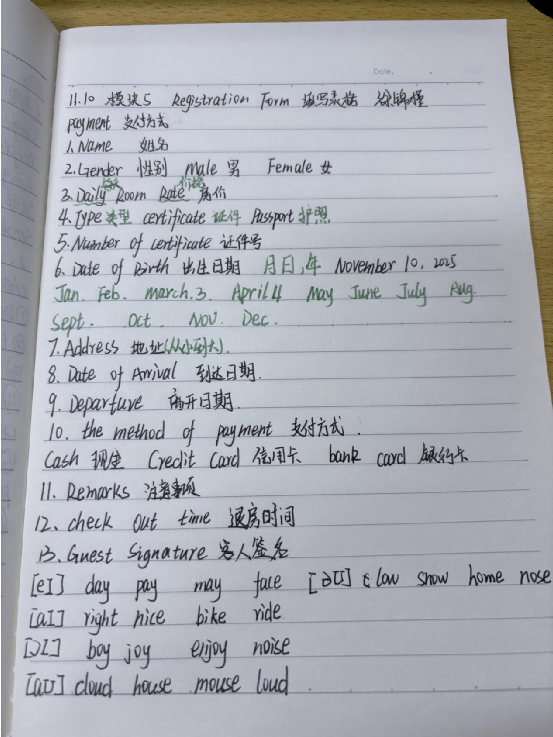 Date.
11.10 模块5 Registration Form 填写表格
payment 支付方式
1. Name 姓名
2. Gender 性别 male 男 Female 女
每天 价格
3. Daily Room Rate 房价
4. Type 类型 certificate 证件 Passport 护照
5. Number of certificate 证件号
6. Date of Birth 出生日期 月日,年 November 10, 2025
Jan. Feb. march.3. April 4 May June July Aug
Sept. Oct. Nov. Dec.
7. Address 地址(从小到大).
8. Date of Arrival 到达日期.
9. Departure 离开日期.
10. the method of payment 支付方式.
Cash 现金 Credit Card 信用卡 bank card 银行卡
11. Remarks 注意事项
12. check out time 退房时间
13. Guest Signature 客人签名
[eI] day pay may face [əU] slow show home nose
[aI] right nice bike ride
[ɔI] boy joy enjoy noise
[aU] cloud house mouse loud